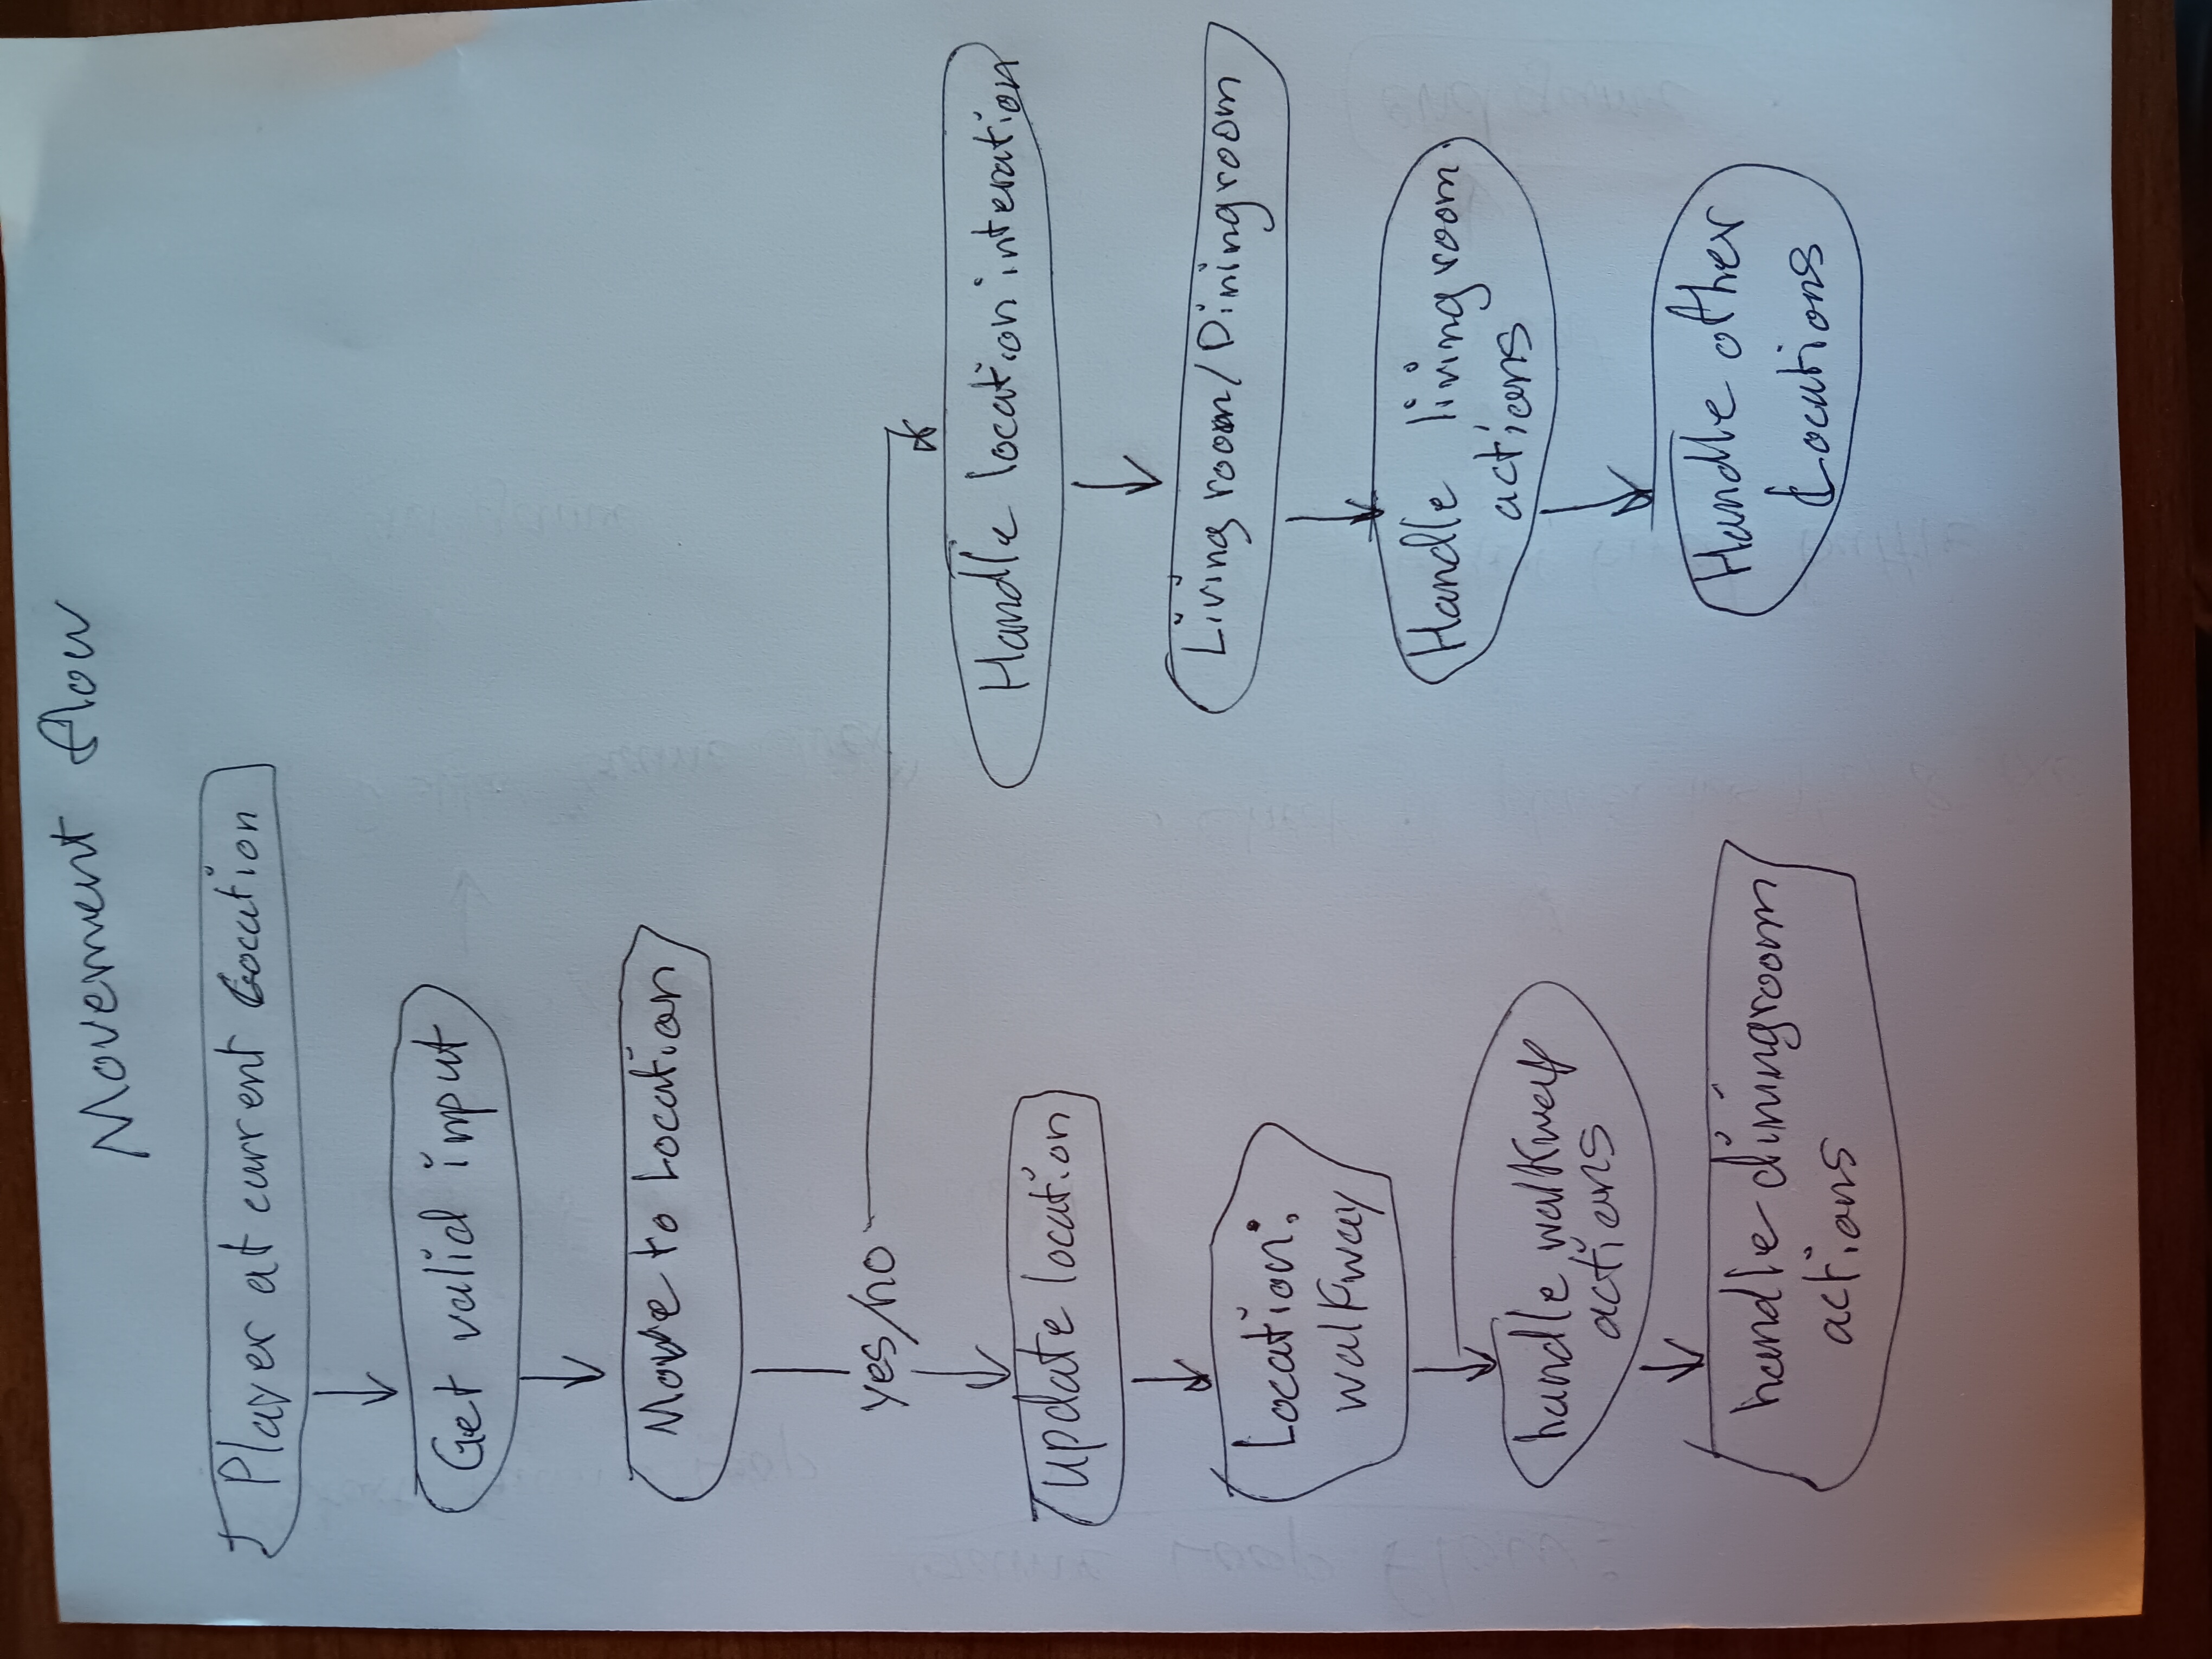 Movement flow
Player at current Location
Get valid input
Move to Location
yes/no
update location
Location:
walkway
handle walkway
actions
handle diningroom
actions
Handle location interation
Living room/Diningroom
Handle livingroom
actions
Handle other
Locations